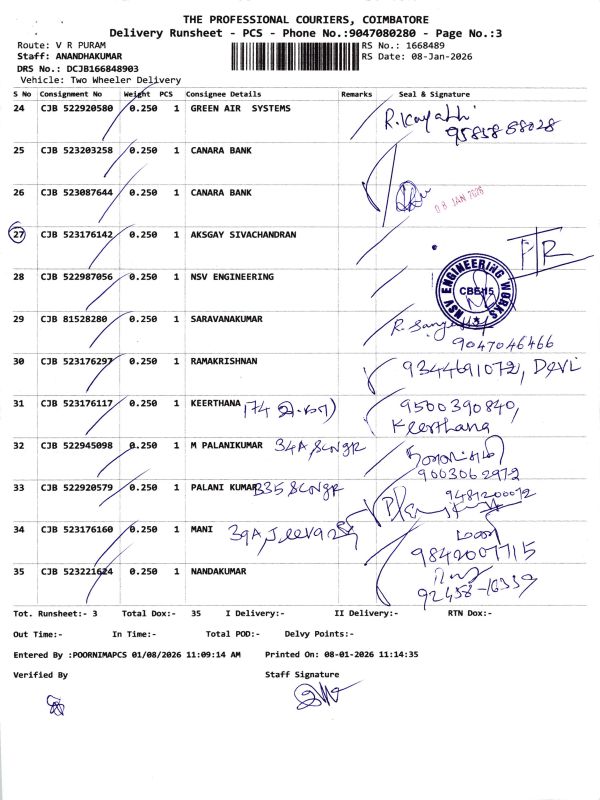 THE PROFESSIONAL COURIERS, COIMBATORE
Delivery Runsheet - PCS - Phone No.:9047080280 - Page No.:3
Route: V R PURAM
RS No.: 1668489
Staff: ANANDHAKUMAR
RS Date: 08-Jan-2026
DRS No.: DCJB166848903
Vehicle: Two Wheeler Delivery
S No Consignment No Weight PCS Consignee Details Remarks Seal & Signature
24 CJB 522920580 0.250 1 GREEN AIR SYSTEMS
95858 88028
25 CJB 523203258 0.250 1 CANARA BANK
26 CJB 523087644 0.250 1 CANARA BANK
08 JAN 2026
27 CJB 523176142 0.250 1 AKSGAY SIVACHANDRAN
28 CJB 522987056 0.250 1 NSV ENGINEERING
NSV ENGINEERING WORKS
29 CJB 81528280 0.250 1 SARAVANAKUMAR
9047046466
30 CJB 523176297 0.250 1 RAMAKRISHNAN 9344691072, DEVI
31 CJB 523176117 0.250 1 KEERTHANA 9500390840,
Keerthana
32 CJB 522945098 0.250 1 M PALANIKUMAR 34A, SCNGR
9003062972
33 CJB 522920579 0.250 1 PALANI KUMAR B35 SCNGR 9487200072
34 CJB 523176160 0.250 1 MANI 39A,
9842007715
35 CJB 523221624 0.250 1 NANDAKUMAR
92458-16339
Tot. Runsheet:- 3 Total Dox:- 35 I Delivery:- II Delivery:- RTN Dox:-
Out Time:- In Time:- Total POD:- Delvy Points:-
Entered By :POORNIMAPCS 01/08/2026 11:09:14 AM Printed On: 08-01-2026 11:14:35
Verified By Staff Signature